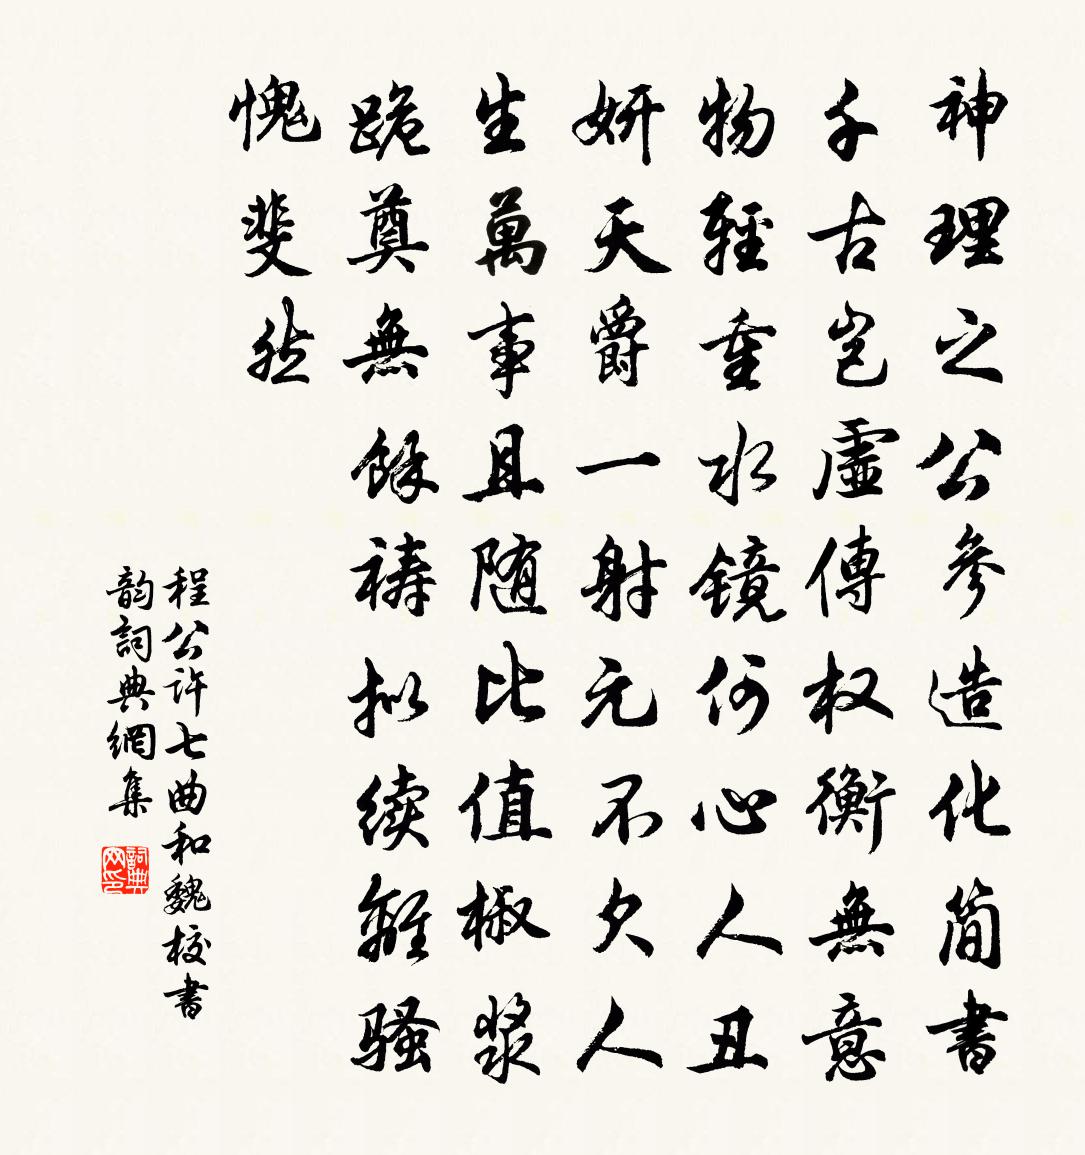 神理之公參造化簡書
千古豈虛傳权衡無意
物輕重水镜何心人丑
妍天爵一射元不欠人
生萬事且随比值椒漿
跪奠無餘禱拟续離骚
愧斐然
程公许七曲和魏校書
韵詞典網集
詞典网印